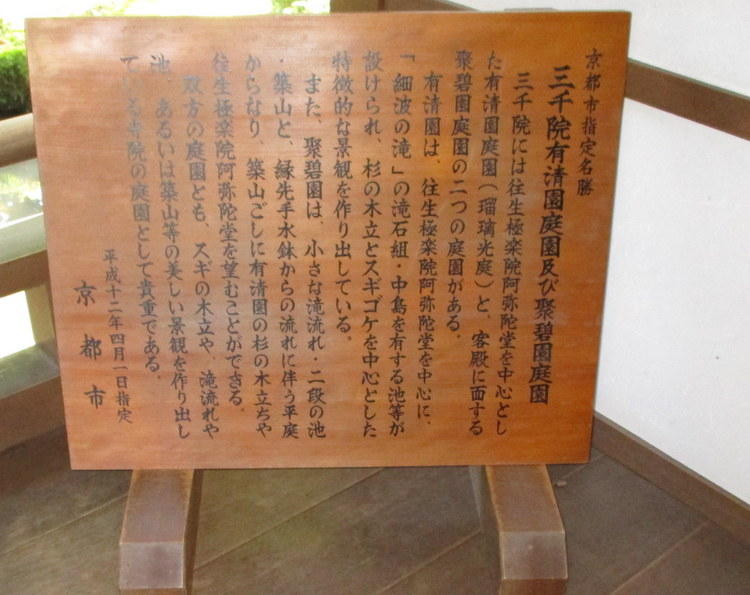 京都市指定名勝
三千院有清園庭園及び聚碧園庭園
三千院には往生極楽院阿弥陀堂を中心とし
た有清園庭園(瑠璃光庭)と、客殿に面する
聚碧園庭園の二つの庭園がある。
有清園は、往生極楽院阿弥陀堂を中心に、
「細波の滝」の滝石組・中島を有する池等が
設けられ、杉の木立とスギゴケを中心とした
特徴的な景観を作り出している。
また、聚碧園は、小さな滝流れ・二段の池
・築山と、縁先手水鉢からの流れに伴う平庭
からなり、築山ごしに有清園の杉の木立ちや
往生極楽院阿弥陀堂を望むことができる。
双方の庭園とも、スギの木立や、滝流れや
池、あるいは築山等の美しい景観を作り出し
ている寺院の庭園として貴重である。
平成十二年四月一日指定
京都市